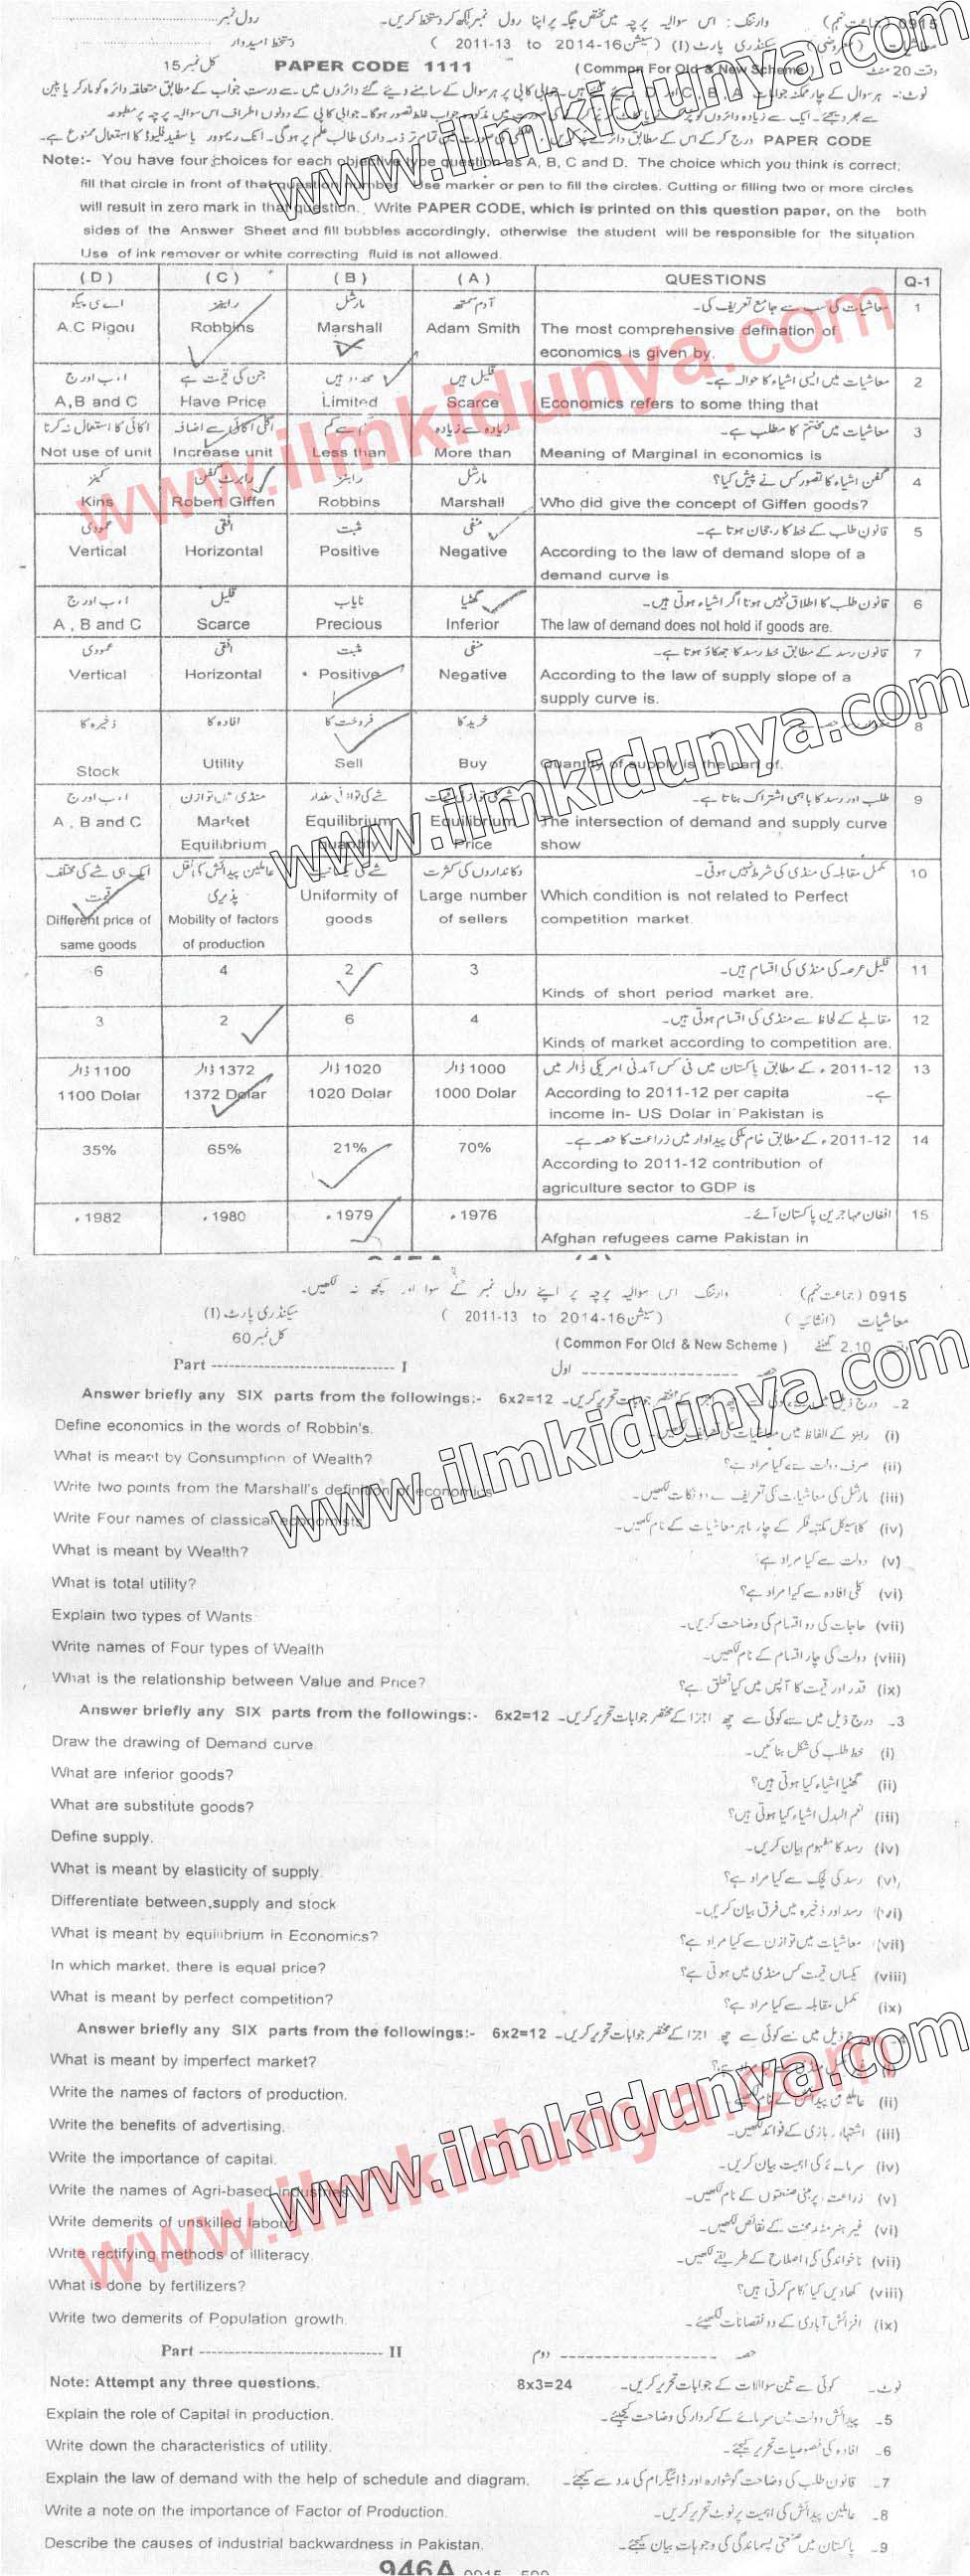 0915 (جماعت نہم) وارننگ: اس سوالیہ پرچہ میں مختص جگہ پر اپنا رول نمبر لکھ کر دستخط کریں۔ رول نمبر
معاشیات سیکنڈری پارٹ (I) (سیشن 2014-16 to 2011-13) دستخط امیدوار
وقت 20 منٹ (Common For Old & New Scheme) PAPER CODE 1111 کل نمبر 15
Note:- You have four choices for each objective type question as A, B, C and D. The choice which you think is correct,
fill that circle in front of that question number. Use marker or pen to fill the circles. Cutting or filling two or more circles
will result in zero mark in that question. Write PAPER CODE, which is printed on this question paper, on the both
sides of the Answer Sheet and fill bubbles accordingly, otherwise the student will be responsible for the situation
Use of ink remover or white correcting fluid is not allowed.
(D) (C) (B) (A) QUESTIONS Q-1
اے سی پیگو رابنز مارشل آدم سمتھ معاشیات کی سب سے جامع تعریف کی۔ 1
A.C Pigou Robbins Marshall Adam Smith The most comprehensive defination of
economics is given by.
ا، ب اور ج جن کی قیمت ہے محدود ہیں قلیل ہیں معاشیات میں ایسی اشیاء کا حوالہ ہے۔ 2
A,B and C Have Price Limited Scarce Economics refers to some thing that
اکائی کا استعمال نہ کرنا اگلی اکائی سے اضافہ سے کم زیادہ سے زیادہ معاشیات میں مختتم کا مطلب ہے۔ 3
Not use of unit Increase unit Less than More than Meaning of Marginal in economics is
کینز رابرٹ گفن رابنز مارشل گفن اشیاء کا تصور کس نے پیش کیا؟ 4
Kins Robert Giffen Robbins Marshall Who did give the concept of Giffen goods?
عمودی افقی مثبت منفی قانون طلب کے خط کا رجحان ہوتا ہے۔ 5
Vertical Horizontal Positive Negative According to the law of demand slope of a
demand curve is
ا، ب اور ج قلیل نایاب گھٹیا قانون طلب کا اطلاق نہیں ہوتا اگر اشیاء ہوتی ہیں۔ 6
A , B and C Scarce Precious Inferior The law of demand does not hold if goods are.
عمودی افقی مثبت منفی قانون رسد کے مطابق خط رسد کا جھکاؤ ہوتا ہے۔ 7
Vertical Horizontal Positive Negative According to the law of supply slope of a
supply curve is.
ذخیرہ کا افادہ کا فروخت کا خرید کا 8
Stock Utility Sell Buy Quantity of supply is the part of.
ا، ب اور ج منڈی میں توازن شے کی توازنی مقدار طلب اور رسد کا باہمی اشتراک بناتا ہے۔ 9
A , B and C Market Equilibrium Equilibrium The intersection of demand and supply curve
Equilibrium Quantity Price show
ایک ہی شے کی مختلف عاملین پیدائش کی نقل دکانداروں کی کثرت مکمل مقابلہ کی منڈی کی شرط نہیں ہوتی۔ 10
قیمت پذیری Uniformity of Large number Which condition is not related to Perfect
Different price of Mobility of factors goods of sellers competition market.
same goods of production
6 4 2 3 قلیل عرصہ کی منڈی کی اقسام ہیں۔ 11
Kinds of short period market are.
3 2 6 4 مقابلے کے لحاظ سے منڈی کی اقسام ہوتی ہیں۔ 12
Kinds of market according to competition are.
1100 ڈالر 1372 ڈالر 1020 ڈالر 1000 ڈالر 2011-12ء کے مطابق پاکستان میں فی کس آمدنی امریکی ڈالر میں 13
1100 Dolar 1372 Dolar 1020 Dolar 1000 Dolar According to 2011-12 per capita ہے۔
income in- US Dolar in Pakistan is
35% 65% 21% 70% 2011-12ء کے مطابق خام ملکی پیداوار میں زراعت کا حصہ ہے۔ 14
According to 2011-12 contribution of
agriculture sector to GDP is
1982ء 1980ء 1979ء 1976ء افغان مہاجرین پاکستان آئے۔ 15
Afghan refugees came Pakistan in
0915 (جماعت نہم) وارننگ اس سوالیہ پرچہ پر اپنے رول نمبر کے سوا اور کچھ نہ لکھیں۔
معاشیات (انشائیہ) (سیشن 2014-16 to 2011-13) سیکنڈری پارٹ (I)
2.10 گھنٹے (Common For Old & New Scheme) کل نمبر 60
Part I حصہ اول
Answer briefly any SIX parts from the followings:- 6x2=12 2۔
Define economics in the words of Robbin's. (i)
What is meant by Consumption of Wealth? صرف دولت سے کیا مراد ہے؟ (ii)
Write two points from the Marshall's definition of economics مارشل کی معاشیات کی تعریف سے دو نکات لکھیں۔ (iii)
Write Four names of classical economists کلاسیکل مکتبہ فکر کے چار ماہر معاشیات کے نام لکھیں۔ (iv)
What is meant by Wealth? دولت سے کیا مراد ہے؟ (v)
What is total utility? کلی افادہ سے کیا مراد ہے؟ (vi)
Explain two types of Wants حاجات کی دو اقسام کی وضاحت کریں۔ (vii)
Write names of Four types of Wealth دولت کی چار اقسام کے نام لکھیں۔ (viii)
What is the relationship between Value and Price? قدر اور قیمت کا آپس میں کیا تعلق ہے؟ (ix)
Answer briefly any SIX parts from the followings:- 6x2=12 درج ذیل میں سے کوئی سے چھ اجزا کے مختصر جوابات تحریر کریں۔ 3۔
Draw the drawing of Demand curve خط طلب کی شکل بنائیں۔ (i)
What are inferior goods? گھٹیا اشیاء کیا ہوتی ہیں؟ (ii)
What are substitute goods? نعم البدل اشیاء کیا ہوتی ہیں؟ (iii)
Define supply. رسد کا مفہوم بیان کریں۔ (iv)
What is meant by elasticity of supply. رسد کی لچک سے کیا مراد ہے؟ (v)
Differentiate between supply and stock رسد اور ذخیرہ میں فرق بیان کریں۔ (vi)
What is meant by equilibrium in Economics? معاشیات میں توازن سے کیا مراد ہے؟ (vii)
In which market, there is equal price? یکساں قیمت کس منڈی میں ہوتی ہے؟ (viii)
What is meant by perfect competition? مکمل مقابلہ سے کیا مراد ہے؟ (ix)
Answer briefly any SIX parts from the followings:- 6x2=12 درج ذیل میں سے کوئی سے چھ اجزا کے مختصر جوابات تحریر کریں۔
What is meant by imperfect market?
Write the names of factors of production. (ii)
Write the benefits of advertising. اشتہار بازی کے فوائد لکھیں۔ (iii)
Write the importance of capital. سرمائے کی اہمیت بیان کریں۔ (iv)
Write the names of Agri-based industries زراعت پر مبنی صنعتوں کے نام لکھیں۔ (v)
Write demerits of unskilled labour غیر ہنر مند محنت کے نقائص لکھیں۔ (vi)
Write rectifying methods of illiteracy ناخواندگی کی اصلاح کے طریقے لکھیں۔ (vii)
What is done by fertilizers? کھادیں کیا کام کرتی ہیں؟ (viii)
Write two demerits of Population growth. افزائش آبادی کے دو نقصانات لکھیئے۔ (ix)
Part II حصہ دوم
Note: Attempt any three questions. 8x3=24 کوئی سے تین سوالات کے جوابات تحریر کریں۔ نوٹ۔
Explain the role of Capital in production. پیدائش دولت میں سرمائے کے کردار کی وضاحت کیجئے۔ 5۔
Write down the characteristics of utility. افادہ کی خصوصیات تحریر کیجئے۔ 6۔
Explain the law of demand with the help of schedule and diagram. قانون طلب کی وضاحت گوشوارہ اور ڈائیگرام کی مدد سے کیجئے۔ 7۔
Write a note on the importance of Factor of Production. عاملین پیدائش کی اہمیت پر نوٹ تحریر کریں۔ 8۔
Describe the causes of industrial backwardness in Pakistan. پاکستان میں صنعتی پسماندگی کی وجوہات بیان کیجئے۔ 9۔
946A 0915
www.ilmkidunya.com
www.ilmkidunya.com
www.ilmkidunya.com
www.ilmkidunya.com
www.ilmkidunya.com
www.ilmkidunya.com